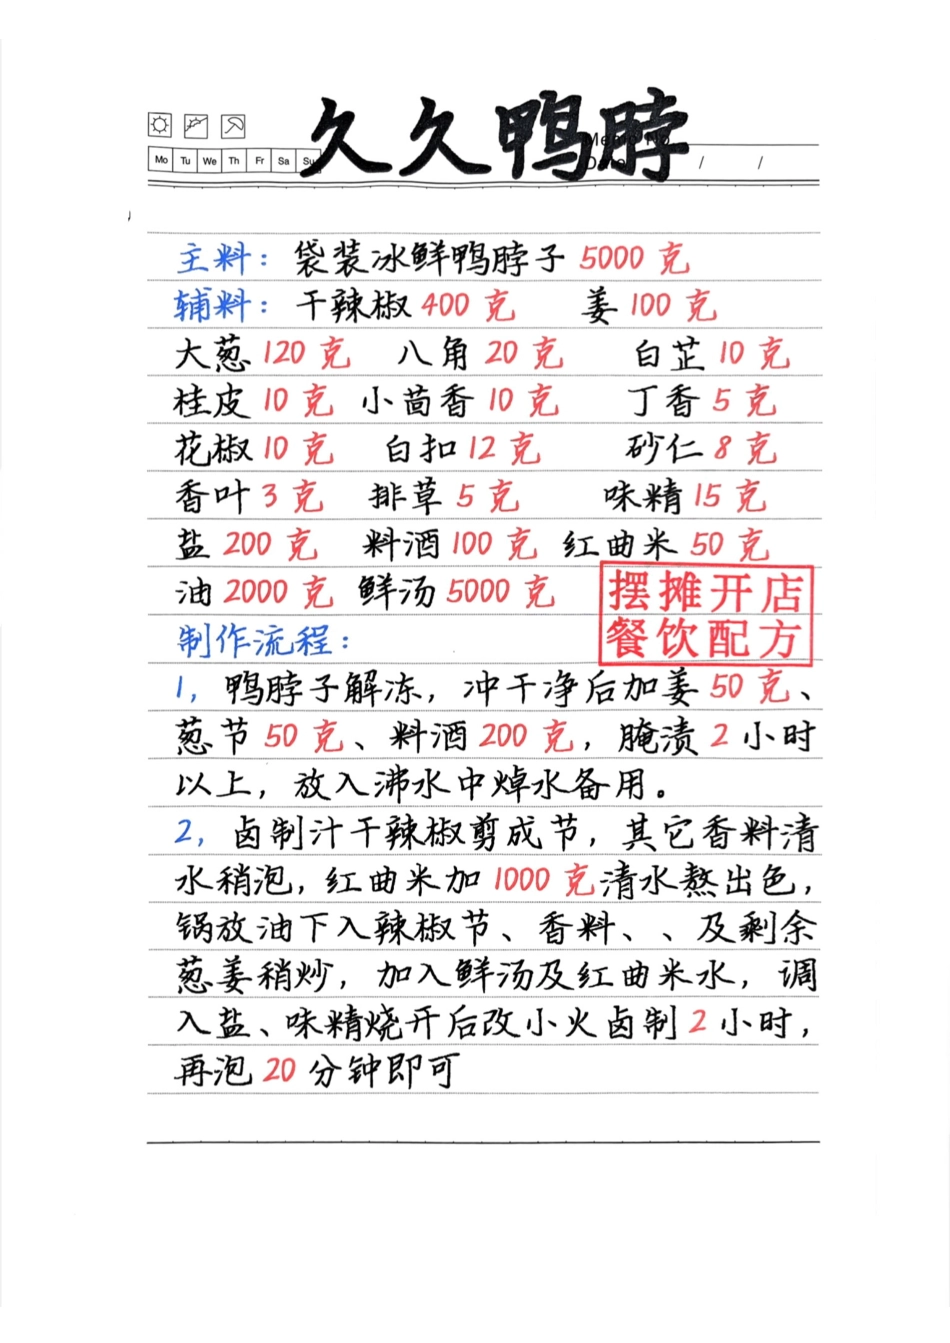 久久鸭脖
Memo No.
Mo Tu We Th Fr Sa Su
Date / /
主料：袋装冰鲜鸭脖子 5000 克
辅料：干辣椒 400 克 姜 100 克
大葱 120 克 八角 20 克 白芷 10 克
桂皮 10 克 小茴香 10 克 丁香 5 克
花椒 10 克 白扣 12 克 砂仁 8 克
香叶 3 克 排草 5 克 味精 15 克
盐 200 克 料酒 100 克 红曲米 50 克
油 2000 克 鲜汤 5000 克
摆摊开店
餐饮配方
制作流程：
1，鸭脖子解冻，冲干净后加姜 50 克、
葱节 50 克、料酒 200 克，腌渍 2 小时
以上，放入沸水中焯水备用。
2，卤制汁干辣椒剪成节，其它香料清
水稍泡，红曲米加 1000 克清水熬出色，
锅放油下入辣椒节、香料、、及剩余
葱姜稍炒，加入鲜汤及红曲米水，调
入盐、味精烧开后改小火卤制 2 小时，
再泡 20 分钟即可